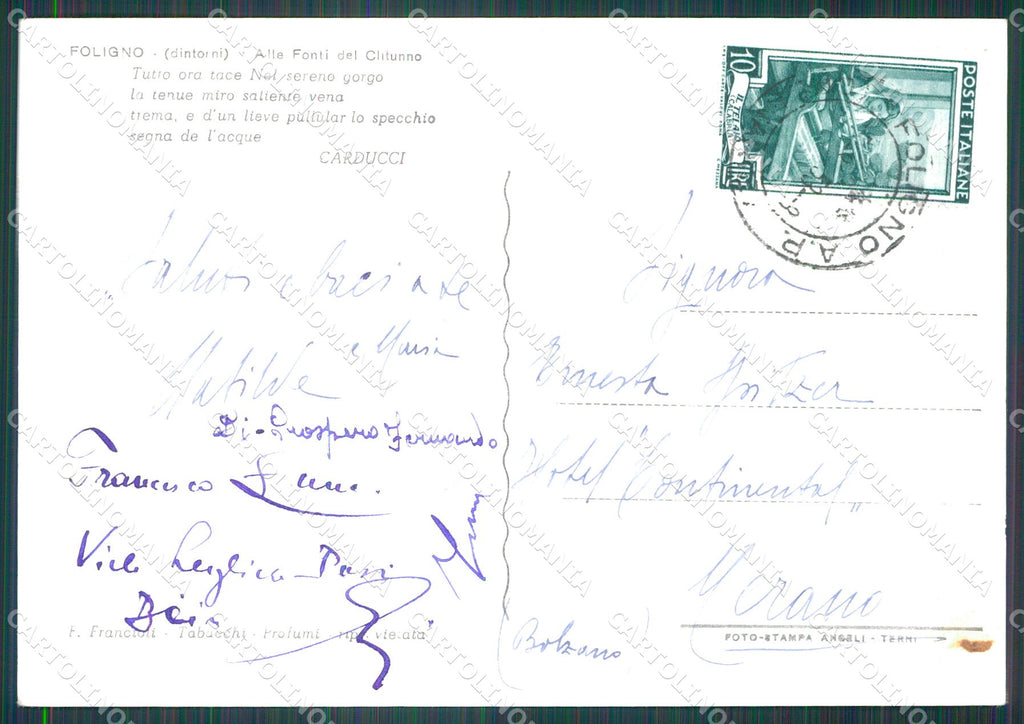 FOLIGNO - (dintorni) - Alle Fonti del Clitunno
Tutto ora tace Nel sereno gorgo
la tenue miro saliente vena
trema, e d'un lieve pullular lo specchio
segna de l'acque
CARDUCCI
10
IL TELAIO
CALABRIA
LIRE
POSTE ITALIANE
FOLIGNO A.P.
Saluti e baci a te
e Maria
Matilde
Di-Prospero Fernando
Francesco
Signora
Ernesta
Hotel "Continental"
Merano
(Bolzano)
F. Francioli - Tabacchi - Profumi - rip. vietata
FOTO-STAMPA ANGELI - TERNI
CARTOLINOMANIA